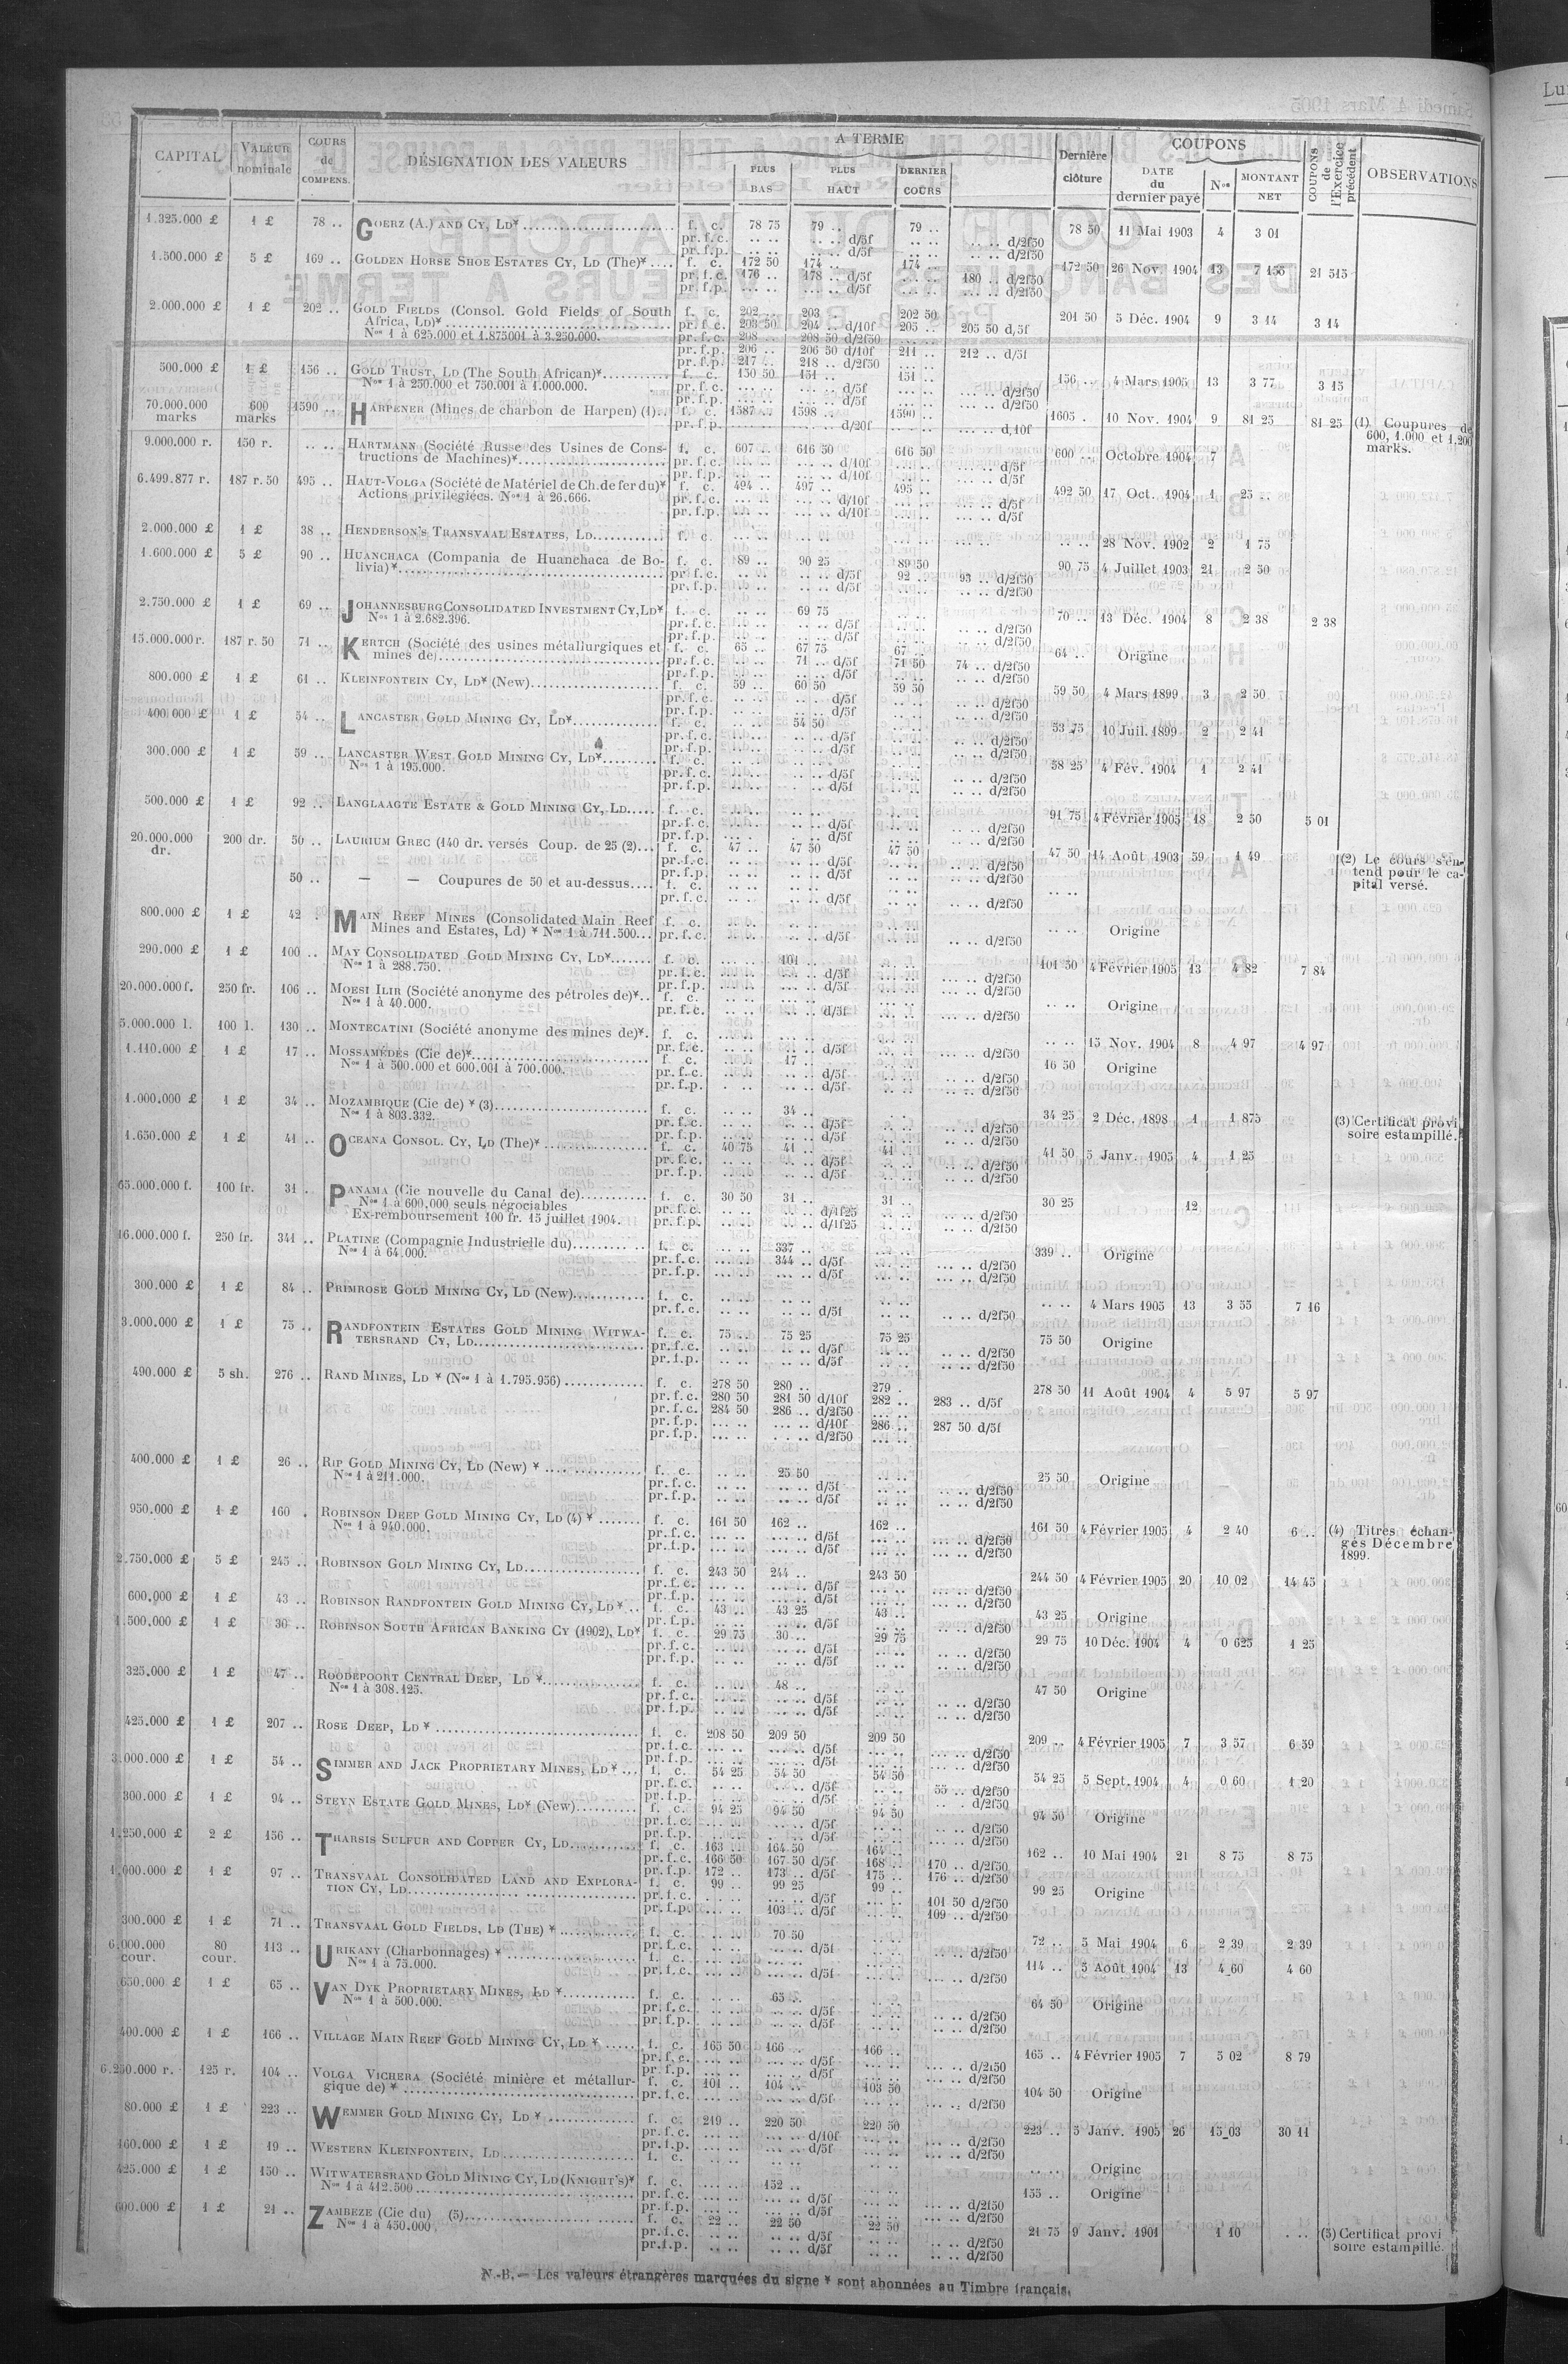 CAPITAL | VALEUR nominale | COURS de COMPENS. | DÉSIGNATION DES VALEURS | A TERME | PLUS BAS | PLUS HAUT | DERNIER COURS | Dernière clôture | COUPONS | DATE du dernier payé | Nos | MONTANT NET | COUPONS de l'Exercice précédent | OBSERVATIONS
1.325.000 £ 1 £ 78 .. GOERZ (A.) AND CY, LD* f. c. 78 75 79 .. 79 .. 78 50 11 Mai 1903 4 3 01
pr. f. c. .. .. .. .. d/5f .. .. .. .. d/2f50
pr. f. p. .. .. .. .. d/5f .. .. .. .. d/2f50
1.500.000 £ 5 £ 169 .. GOLDEN HORSE SHOE ESTATES CY, LD (The)* f. c. 172 50 174 .. 174 .. 172 50 26 Nov. 1904 13 7 155 21 515
pr. f. c. 176 .. 178 .. d/5f 180 .. d/2f50
pr. f. p. d/5f d/2f50
2.000.000 £ 1 £ 202 .. GOLD FIELDS (Consol. Gold Fields of South f. c. 202 .. 203 .. 202 50 201 50 5 Déc. 1904 9 3 14 3 14
Africa, LD)* pr. f. c. 203 50 204 .. d/10f 205 .. 205 50 d/5f
Nos 1 à 625.000 et 1.875001 à 3.250.000. pr. f. c. 208 .. 208 50 d/2f50
pr. f. p. 206 .. 206 50 d/10f 211 .. 212 .. d/5f
pr. f. p. 217 .. 218 .. d/2f50
500.000 £ 1 £ 156 .. GOLD TRUST, LD (The South African)* f. c. 150 50 151 .. 151 .. 156 .. 4 Mars 1905 13 3 77 3 15
Nos 1 à 250.000 et 750.001 à 1.000.000. pr. f. c. d/5f d/2f50
pr. f. p. d/5f d/2f50
70.000.000 marks 600 marks 1590 .. HARPENER (Mines de charbon de Harpen) (1) f. c. 1587 .. 1598 .. 1590 .. 1605 . 10 Nov. 1904 9 81 25 81 25 (1) Coupures de 600, 1.000 et 1,200 marks.
pr. f. p. d/20f d/10f
9.000.000 r. 150 r. .. .. HARTMANN (Société Russe des Usines de Cons- f. c. 607 .. 616 50 616 50 600 .. Octobre 1904 7
tructions de Machines)* pr. f. c. d/10f d/5f
pr. f. p. d/10f d/5f
6.499.877 r. 187 r. 50 495 .. HAUT-VOLGA (Société de Matériel de Ch. de fer du)* f. c. 494 .. 497 .. 495 .. 492 50 17 Oct. 1904 1 25 ..
Actions privilégiées. Nos 1 à 26.666. pr. f. c. d/10f d/5f
pr. f. p. d/10f d/5f
2.000.000 £ 1 £ 38 .. HENDERSON'S TRANSVAAL ESTATES, LD f. c. .. .. 28 Nov. 1902 2 1 75
1.600.000 £ 5 £ 90 .. HUANCHACA (Compania de Huanchaca de Bo- f. c. 89 .. 90 25 89 50 90 75 4 Juillet 1903 21 2 50
livia)* pr. f. c. d/5f 92 .. 93 .. d/2f50
pr. f. p. d/5f d/2f50
2.750.000 £ 1 £ 69 .. JOHANNESBURG CONSOLIDATED INVESTMENT CY, LD* f. c. 69 75 70 .. 13 Déc. 1904 8 2 38 2 38
Nos 1 à 2.682.396. pr. f. c. d/5f d/2f50
pr. f. p. d/5f d/2f50
15.000.000 r. 187 r. 50 71 .. KERTCH (Société des usines métallurgiques et f. c. 65 .. 67 75 67 .. 64 .. Origine
mines de) pr. f. c. 71 .. d/5f 71 50 74 .. d/2f50
pr. f. p. d/5f d/2f50
800.000 £ 1 £ 61 .. KLEINFONTEIN CY, LD* (New) f. c. 59 .. 60 50 59 50 59 50 4 Mars 1899 3 2 50
pr. f. c. d/5f d/2f50
pr. f. p. d/5f d/2f50
400.000 £ 1 £ 54 .. LANCASTER GOLD MINING CY, LD* f. c. 54 50 53 75 10 Juil. 1899 2 2 41
pr. f. c. d/5f d/2f50
pr. f. p. d/5f d/2f50
300.000 £ 1 £ 59 .. LANCASTER WEST GOLD MINING CY, LD* f. c. 58 25 4 Fév. 1904 1 2 41
Nos 1 à 195.000. pr. f. c. d/5f d/2f50
pr. f. p. d/5f d/2f50
500.000 £ 1 £ 92 .. LANGLAAGTE ESTATE & GOLD MINING CY, LD f. c. 91 75 4 Février 1905 18 2 50 5 01
pr. f. c. d/5f d/2f50
pr. f. p. d/5f d/2f50
20.000.000 dr. 200 dr. 50 .. LAURIUM GREC (140 dr. versés Coup. de 25 (2) f. c. 47 .. 47 50 47 50 47 50 14 Août 1903 59 1 49 (2) Le cours s'entend pour le capital versé.
pr. f. c. d/5f d/2f50
pr. f. p. d/5f d/2f50
50 .. — — Coupures de 50 et au-dessus f. c. .. ..
pr. f. c. d/5f d/2f50
800.000 £ 1 £ 42 .. MAIN REEF MINES (Consolidated Main Reef f. c. .. .. Origine
Mines and Estates, Ld) * Nos 1 à 711.500 pr. f. c. d/5f d/2f50
290.000 £ 1 £ 100 .. MAY CONSOLIDATED GOLD MINING CY, LD* f. c. 101 .. 101 50 4 Février 1905 13 4 82 7 84
Nos 1 à 288.750. pr. f. c. d/5f d/2f50
pr. f. p. d/5f d/2f50
20.000.000 f. 250 fr. 106 .. MOESI ILIR (Société anonyme des pétroles de)* f. c. .. .. Origine
Nos 1 à 40.000. pr. f. c. d/5f d/2f50
5.000.000 l. 100 l. 130 .. MONTECATINI (Société anonyme des mines de)* f. c. .. .. 15 Nov. 1904 8 4 97 4 97
pr. f. c. d/5f d/2f50
1.110.000 £ 1 £ 17 .. MOSSAMÉDÈS (Cie de)* f. c. 17 .. 16 50 Origine
Nos 1 à 500.000 et 600.001 à 700.000. pr. f. c. d/5f d/2f50
pr. f. p. d/5f d/2f50
1.000.000 £ 1 £ 34 .. MOZAMBIQUE (Cie de) * (3) f. c. 34 .. 34 25 2 Déc. 1898 1 1 875 (3) Certificat provisoire estampillé.
Nos 1 à 803.332. pr. f. c. d/5f d/2f50
pr. f. p. d/5f d/2f50
1.650.000 £ 1 £ 41 .. OCEANA CONSOL. CY, LD (The)* f. c. 40 75 41 .. 41 .. 41 50 5 Janv. 1905 4 1 25
pr. f. c. d/5f d/2f50
pr. f. p. d/5f d/2f50
65.000.000 f. 100 fr. 31 . PANAMA (Cie nouvelle du Canal de) f. c. 30 50 31 .. 31 .. 30 25 12
Nos 1 à 600,000 seuls négociables pr. f. c. d/1f25 d/2f50
Ex-remboursement 100 fr. 15 juillet 1904. pr. f. p. d/1f25 d/2f50
16.000.000 f. 250 fr. 341 .. PLATINE (Compagnie Industrielle du) f. c. 337 .. 339 .. Origine
Nos 1 à 64.000. pr. f. c. 344 .. d/5f d/2f50
pr. f. p. d/5f d/2f50
300.000 £ 1 £ 84 .. PRIMROSE GOLD MINING CY, LD (New) f. c. .. .. 4 Mars 1905 13 3 55 7 16
pr. f. c. d/5f d/2f50
3.000.000 £ 1 £ 75 .. RANDFONTEIN ESTATES GOLD MINING WITWA- f. c. 75 .. 75 25 75 25 75 50 Origine
TERSRAND CY, LD pr. f. c. d/5f d/2f50
pr. f. p. d/5f d/2f50
490.000 £ 5 sh. 276 .. RAND MINES, LD * (Nos 1 à 1.795.956) f. c. 278 50 280 .. 279 . 278 50 11 Août 1904 4 5 97 5 97
pr. f. c. 280 50 281 50 d/10f 282 .. 283 .. d/5f
pr. f. c. 284 50 286 .. d/2f50
pr. f. p. d/10f 286 .. 287 50 d/5f
pr. f. p. d/2f50
400.000 £ 1 £ 26 .. RIP GOLD MINING CY, LD (New) * f. c. 25 50 25 50 Origine
Nos 1 à 211.000. pr. f. c. d/5f d/2f50
pr. f. p. d/5f d/2f50
950.000 £ 1 £ 160 . ROBINSON DEEP GOLD MINING CY, LD (4) * f. c. 161 50 162 .. 162 .. 161 50 4 Février 1905 4 2 40 6 .. (4) Titres échangés Décembre 1899.
Nos 1 à 940.000. pr. f. c. d/5f d/2f50
pr. f. p. d/5f d/2f50
2.750.000 £ 5 £ 245 .. ROBINSON GOLD MINING CY, LD f. c. 243 50 244 .. 243 50 244 50 4 Février 1905 20 10 02 14 45
pr. f. c. d/5f d/2f50
pr. f. p. d/5f d/2f50
600.000 £ 1 £ 43 .. ROBINSON RANDFONTEIN GOLD MINING CY, LD * f. c. 43 .. 43 25 43 .. 43 25 Origine
pr. f. p. d/5f d/2f50
1.500.000 £ 1 £ 30 .. ROBINSON SOUTH AFRICAN BANKING CY (1902), LD* f. c. 29 75 30 .. 29 75 29 75 10 Déc. 1904 4 0 625 1 25
pr. f. c. d/5f d/2f50
pr. f. p. d/5f d/2f50
325.000 £ 1 £ 47 .. ROODEPOORT CENTRAL DEEP, LD * f. c. 48 .. 47 50 Origine
Nos 1 à 308.125. pr. f. c. d/5f d/2f50
pr. f. p. d/5f d/2f50
425.000 £ 1 £ 207 .. ROSE DEEP, LD * f. c. 208 50 209 50 209 50 209 .. 4 Février 1905 7 3 57 6 59
pr. f. c. d/5f d/2f50
pr. f. p. d/5f d/2f50
3.000.000 £ 1 £ 54 .. SIMMER AND JACK PROPRIETARY MINES, LD * f. c. 54 25 54 50 54 50 54 25 5 Sept. 1904 4 0 60 1 20
pr. f. c. d/5f 55 .. d/2f50
pr. f. p. d/5f d/2f50
300.000 £ 1 £ 94 .. STEYN ESTATE GOLD MINES, LD* (New) f. c. 94 25 94 50 94 50 94 50 Origine
pr. f. c. d/5f d/2f50
pr. f. p. d/5f d/2f50
1.250.000 £ 2 £ 156 .. THARSIS SULFUR AND COPPER CY, LD f. c. 163 .. 164 50 164 .. 162 .. 10 Mai 1904 21 8 75 8 75
pr. f. c. 166 50 167 50 d/5f 168 .. 170 .. d/2f50
pr. f. p. 172 .. 173 .. d/5f 175 .. 176 .. d/2f50
1.000.000 £ 1 £ 97 .. TRANSVAAL CONSOLIDATED LAND AND EXPLORA- f. c. 99 .. 99 25 99 .. 99 25 Origine
TION CY, LD pr. f. c. d/5f 101 50 d/2f50
pr. f. p. 103 .. d/5f 109 .. d/2f50
300.000 £ 1 £ 71 .. TRANSVAAL GOLD FIELDS, LD (THE) * f. c. 70 50 72 .. 5 Mai 1904 6 2 39 2 39
pr. f. c. d/5f d/2f50
6.000.000 cour. 80 cour. 113 .. URIKANY (Charbonnages) * f. c. 114 .. 5 Août 1904 13 4 60 4 60
Nos 1 à 75.000. pr. f. c. d/5f d/2f50
650.000 £ 1 £ 65 .. VAN DYK PROPRIETARY MINES, LD * f. c. 65 .. 64 50 Origine
Nos 1 à 500.000. pr. f. c. d/5f d/2f50
pr. f. p. d/5f d/2f50
400.000 £ 1 £ 166 .. VILLAGE MAIN REEF GOLD MINING CY, LD * f. c. 165 50 166 .. 166 .. 165 .. 4 Février 1905 7 5 02 8 79
pr. f. c. d/5f d/2f50
pr. f. p. d/5f d/2f50
6.250.000 r. 125 r. 104 .. VOLGA VICHERA (Société minière et métallur- f. c. 101 .. 104 .. 103 50 104 50 Origine
gique de) * pr. f. c. d/5f d/2f50
80.000 £ 1 £ 223 .. WEMMER GOLD MINING CY, LD * f. c. 219 .. 220 50 220 50 223 .. 5 Janv. 1905 26 15 03 30 11
pr. f. c. d/10f d/2f50
pr. f. p. d/5f d/2f50
160.000 £ 1 £ 19 .. WESTERN KLEINFONTEIN, LD f. c. .. .. Origine
425.000 £ 1 £ 150 .. WITWATERSRAND GOLD MINING CY, LD (KNIGHT'S)* f. c. 152 .. 155 .. Origine
Nos 1 à 412.500 pr. f. c. d/5f d/2f50
pr. f. p. d/5f d/2f50
600.000 £ 1 £ 21 .. ZAMBEZE (Cie du) (5) f. c. 22 .. 22 50 22 50 21 75 9 Janv. 1901 1 10 .. .. (5) Certificat provisoire estampillé.
Nos 1 à 450.000 pr. f. c. d/5f d/2f50
pr. f. p. d/5f d/2f50
N.-B. — Les valeurs étrangères marquées du signe * sont abonnées au Timbre français.